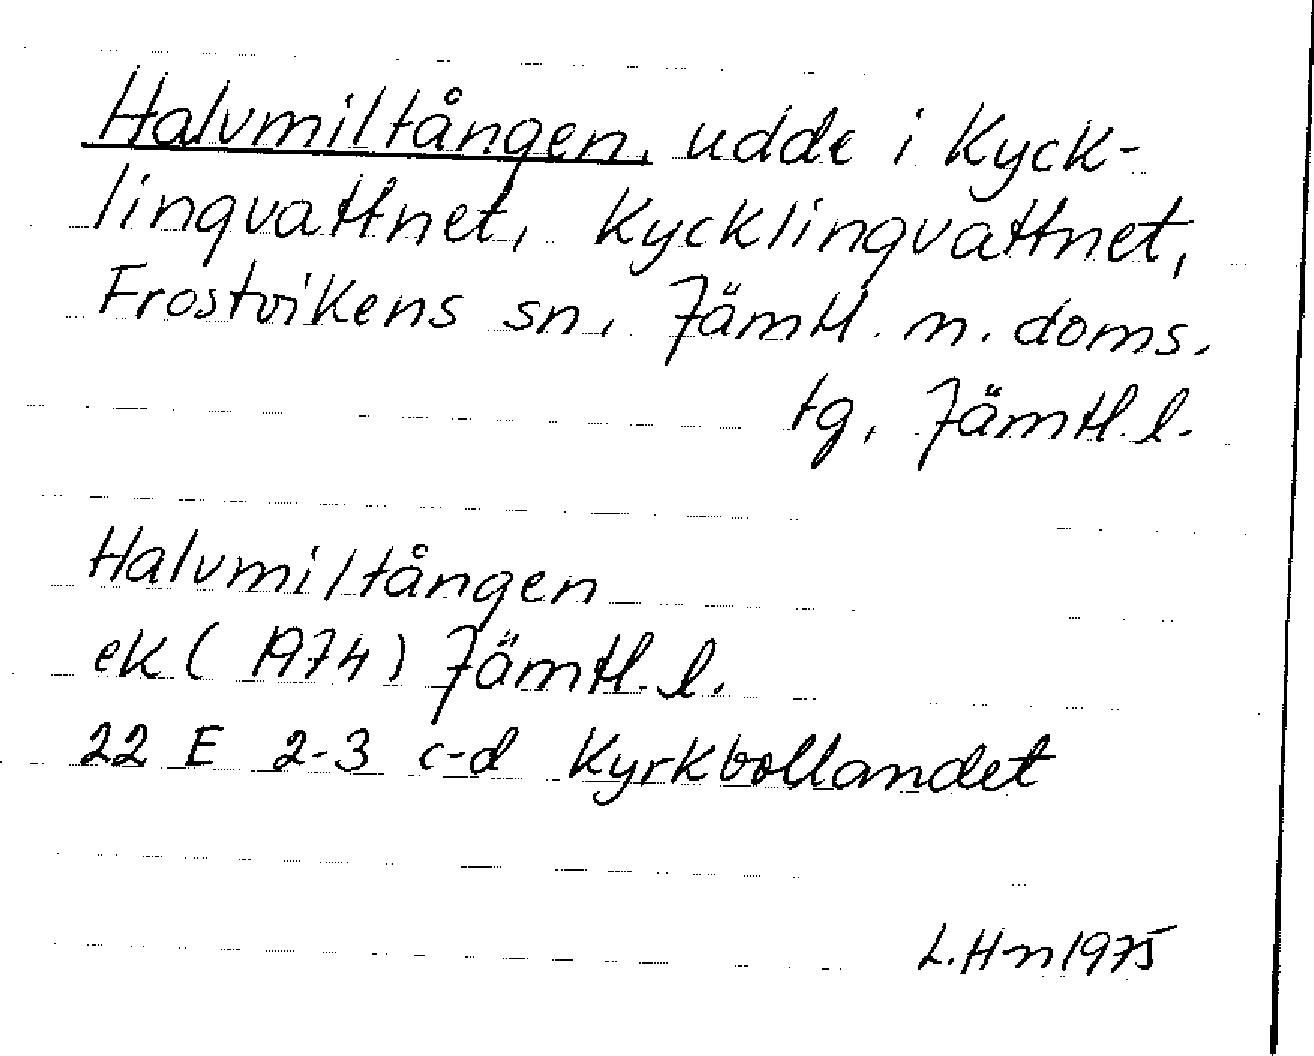 Halvmiltången, udde i Kyck-
lingvattnet, Kycklingvattnet,
Frostvikens sn, Jämtl. n. doms.
tg, Jämtl. l.
Halvmiltången
ek (1974) Jämtl. l.
22 E 2-3 c-d Kyrkbollandet
L. Hn 1975